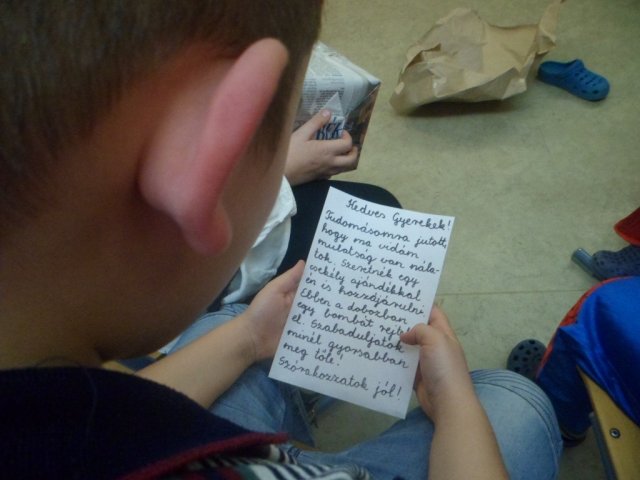 Kedves Gyerekek!
Tudomásomra jutott,
hogy ma vidám
mulatság van nála-
tok. Szeretnék egy
csekély ajándékkal
én is hozzájárulni.
Ebben a dobozban
egy bombát rejt
el. Szabaduljatok
minél gyorsabban
meg tőle!
Szórakozzatok jól!